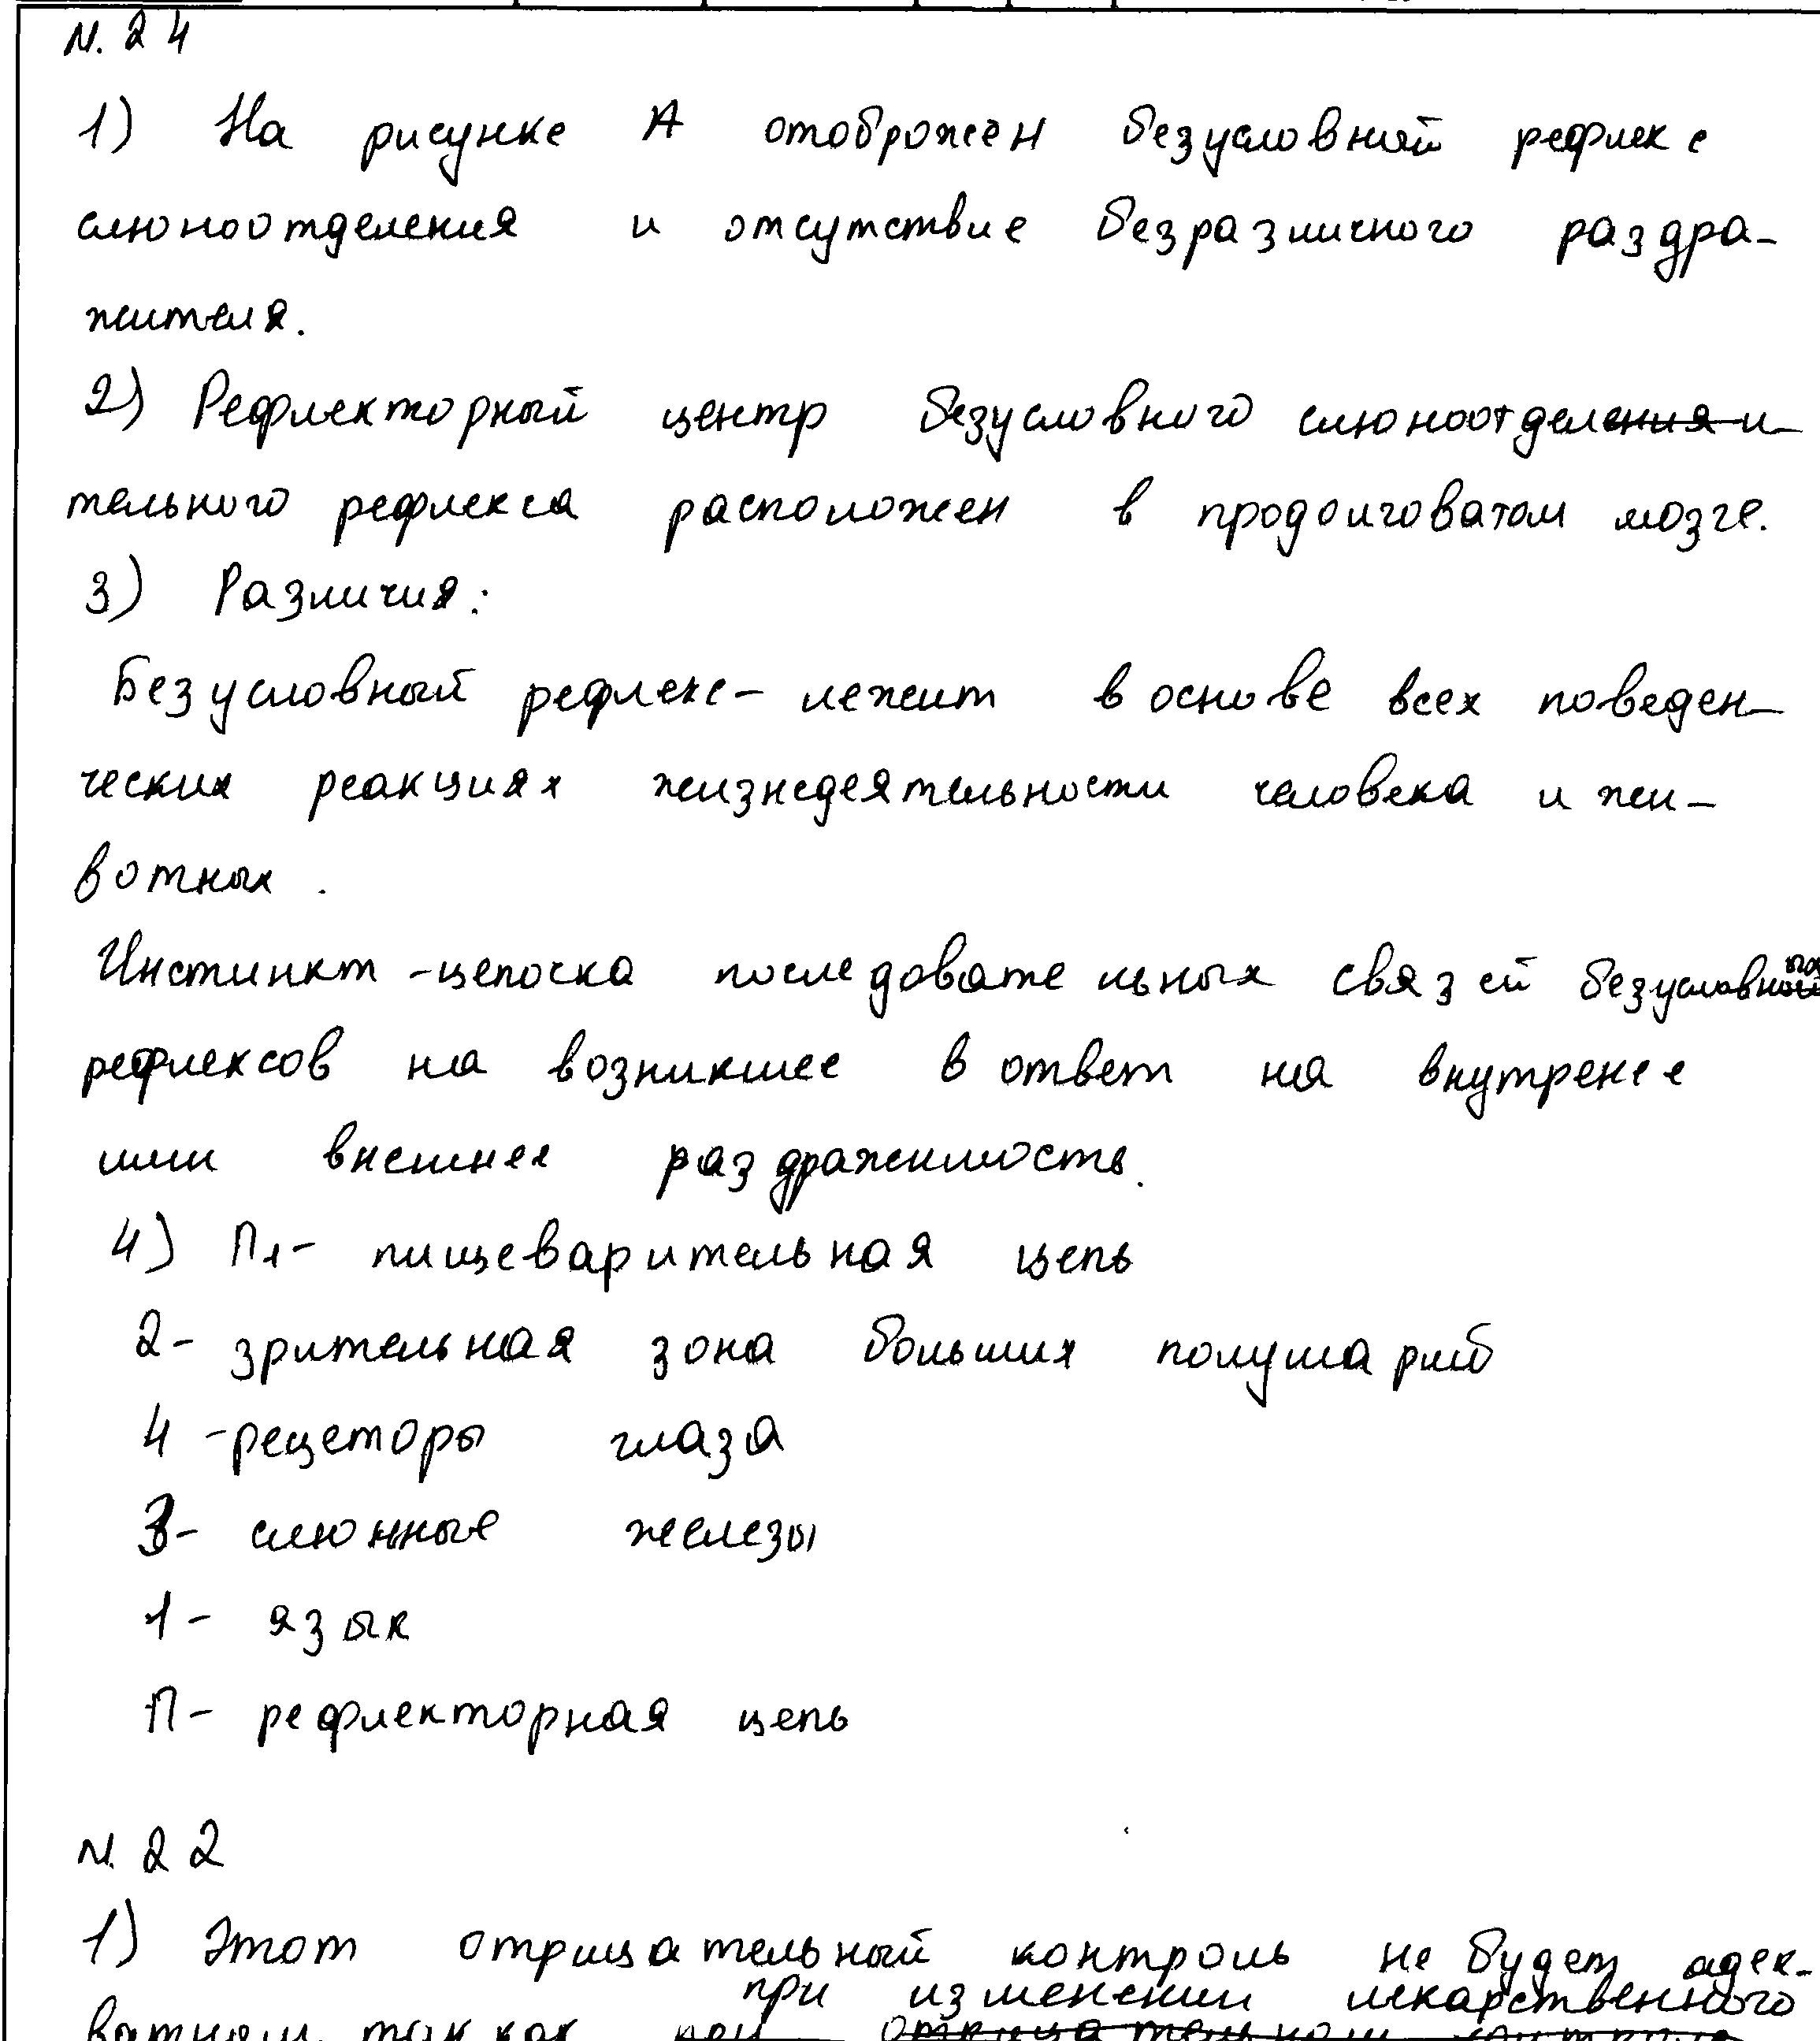 N. 24
1) На рисунке А отоброжен безусловный рефлекс
слюноотделения и отсутствие безразличного раздра-
жителя.
2) Рефлекторный центр безусловного слюноотделения и-
тельного рефлекса расположен в продолговатом мозге.
3) Различия:
Безусловный рефлекс - лежит в основе всех поведен-
ческих реакциях жизнедеятельности человека и жи-
вотных.
Инстинкт - цепочка последовательных связей безусловных
рефлексов на возникшее в ответ на внутренее
или внешнее раздражимость.
4) П1 - пищеварительная цепь
2 - зрительная зона больших полушарий
4 - рецеторы глаза
3 - слюнные железы
1 - язык
П - рефлекторная цепь
N. 22
1) Этот отрицательный контроль не будет адек-
при изменении лекарственного
ватным, так как при